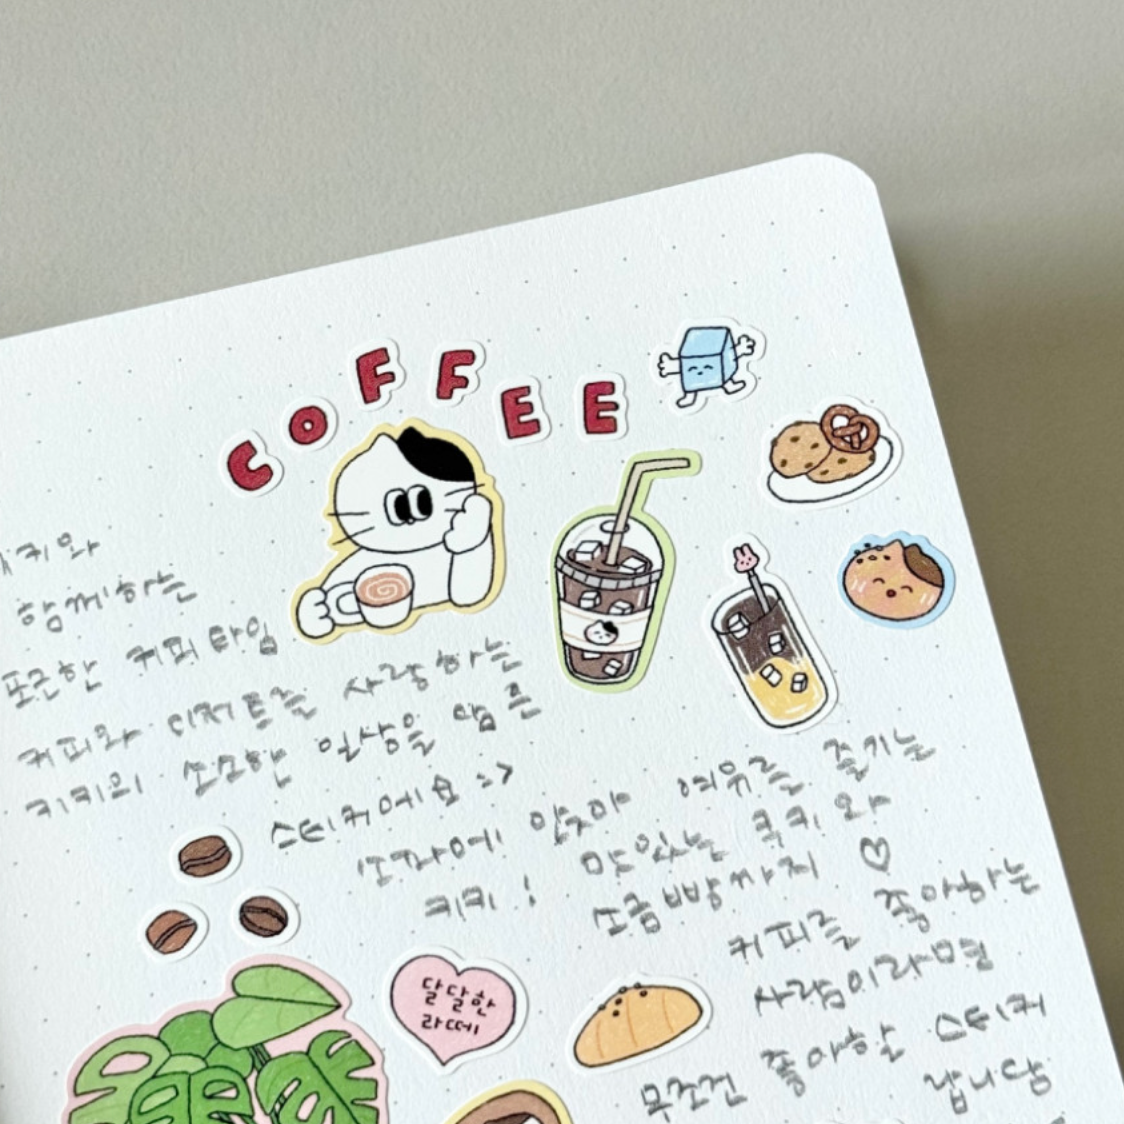 COFFEE
키키와
함께하는
포근한 커피타임
커피와 디저트를 사랑하는
키키의 소소한 일상을 담은
스티커에요 :>
소파에 앉아 여유를 즐기는
키키! 맛있는 쿠키와
소금빵까지 ♡
커피를 좋아하는
사람이라면
무조건 좋아할 스티커
랍니담
달달한
라떼